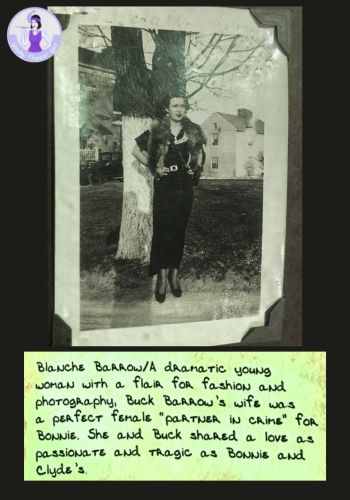 Blanche Barrow/A dramatic young
woman with a flair for fashion and
photography, Buck Barrow's wife was
a perfect female "partner in crime" for
Bonnie. She and Buck shared a love as
passionate and tragic as Bonnie and
Clyde's.